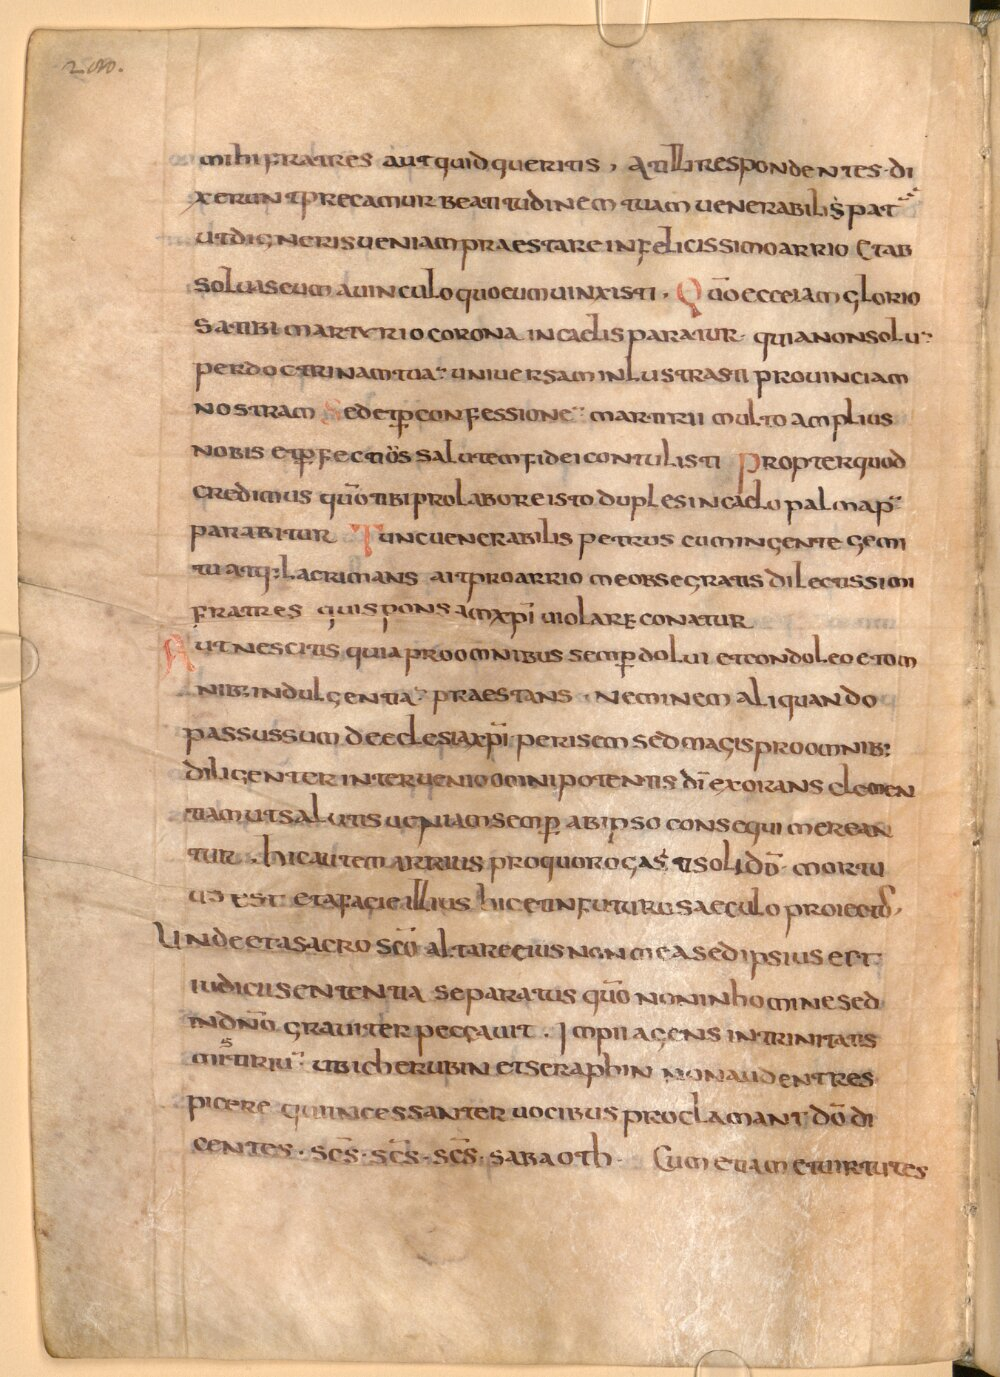 200.
mihi fratres aut quid queritis, At illi respondentes di
xerunt precamur beatitudinem tuam uenerabilis pat̅
ut digneris ueniam praestare infelicissimo arrio Et ab
soluas eum a uinculo quo eum uinxisti. Qūo ecce iam glorio
sa tibi martyrio corona in caelis paratur. quia non solu̅
per doctrinam tua̅ uniuersam inlustrasti prouinciam
nostram Sed et ꝑ confessione̅ martirii multo amplius
nobis et ꝑfectio̅s salutem fidei contulisti Propter quod
credimus quo̅ tibi pro labore isto duples in caelo palma p̅
parabitur Tunc uenerabilis petrus cum ingente gemi
tu atq: lacrimans ait pro arrio me obsegratis dilectissimi
fratres qui sponsam xp̅i uiolare conatur
Aut nescitis quia pro omnibus semꝑ dolui et condoleo et om
nib: indulgentia̅ praestans. neminem aliquando
passus sum de eclesia xp̅i perisem sed magis pro omnib:
diligenter interuenio omnipotentis di̅ exorans clemen
tiam ut salutis ueniam semꝑ ab ipso consequi merean
tur. hic autem arrius pro quo rogastis olido̅ mortu
us est et a facie illius hic et in futuru saeculo proiectus,
Unde et a sacro sc̅o altare eius non mea sed ipsius est
iudicii sententia separatus quo̅ non in homine sed
in dn̅o grauiter peccauit. Impii agens in trinitatis
mistiriu̅ ubi cherubin et seraphin non audent res
picere qui incessanter uocibus proclamant do̅ di
centes. sc̅s. sc̅s. sc̅s. sabaoth. Cum etiam et uirtutes